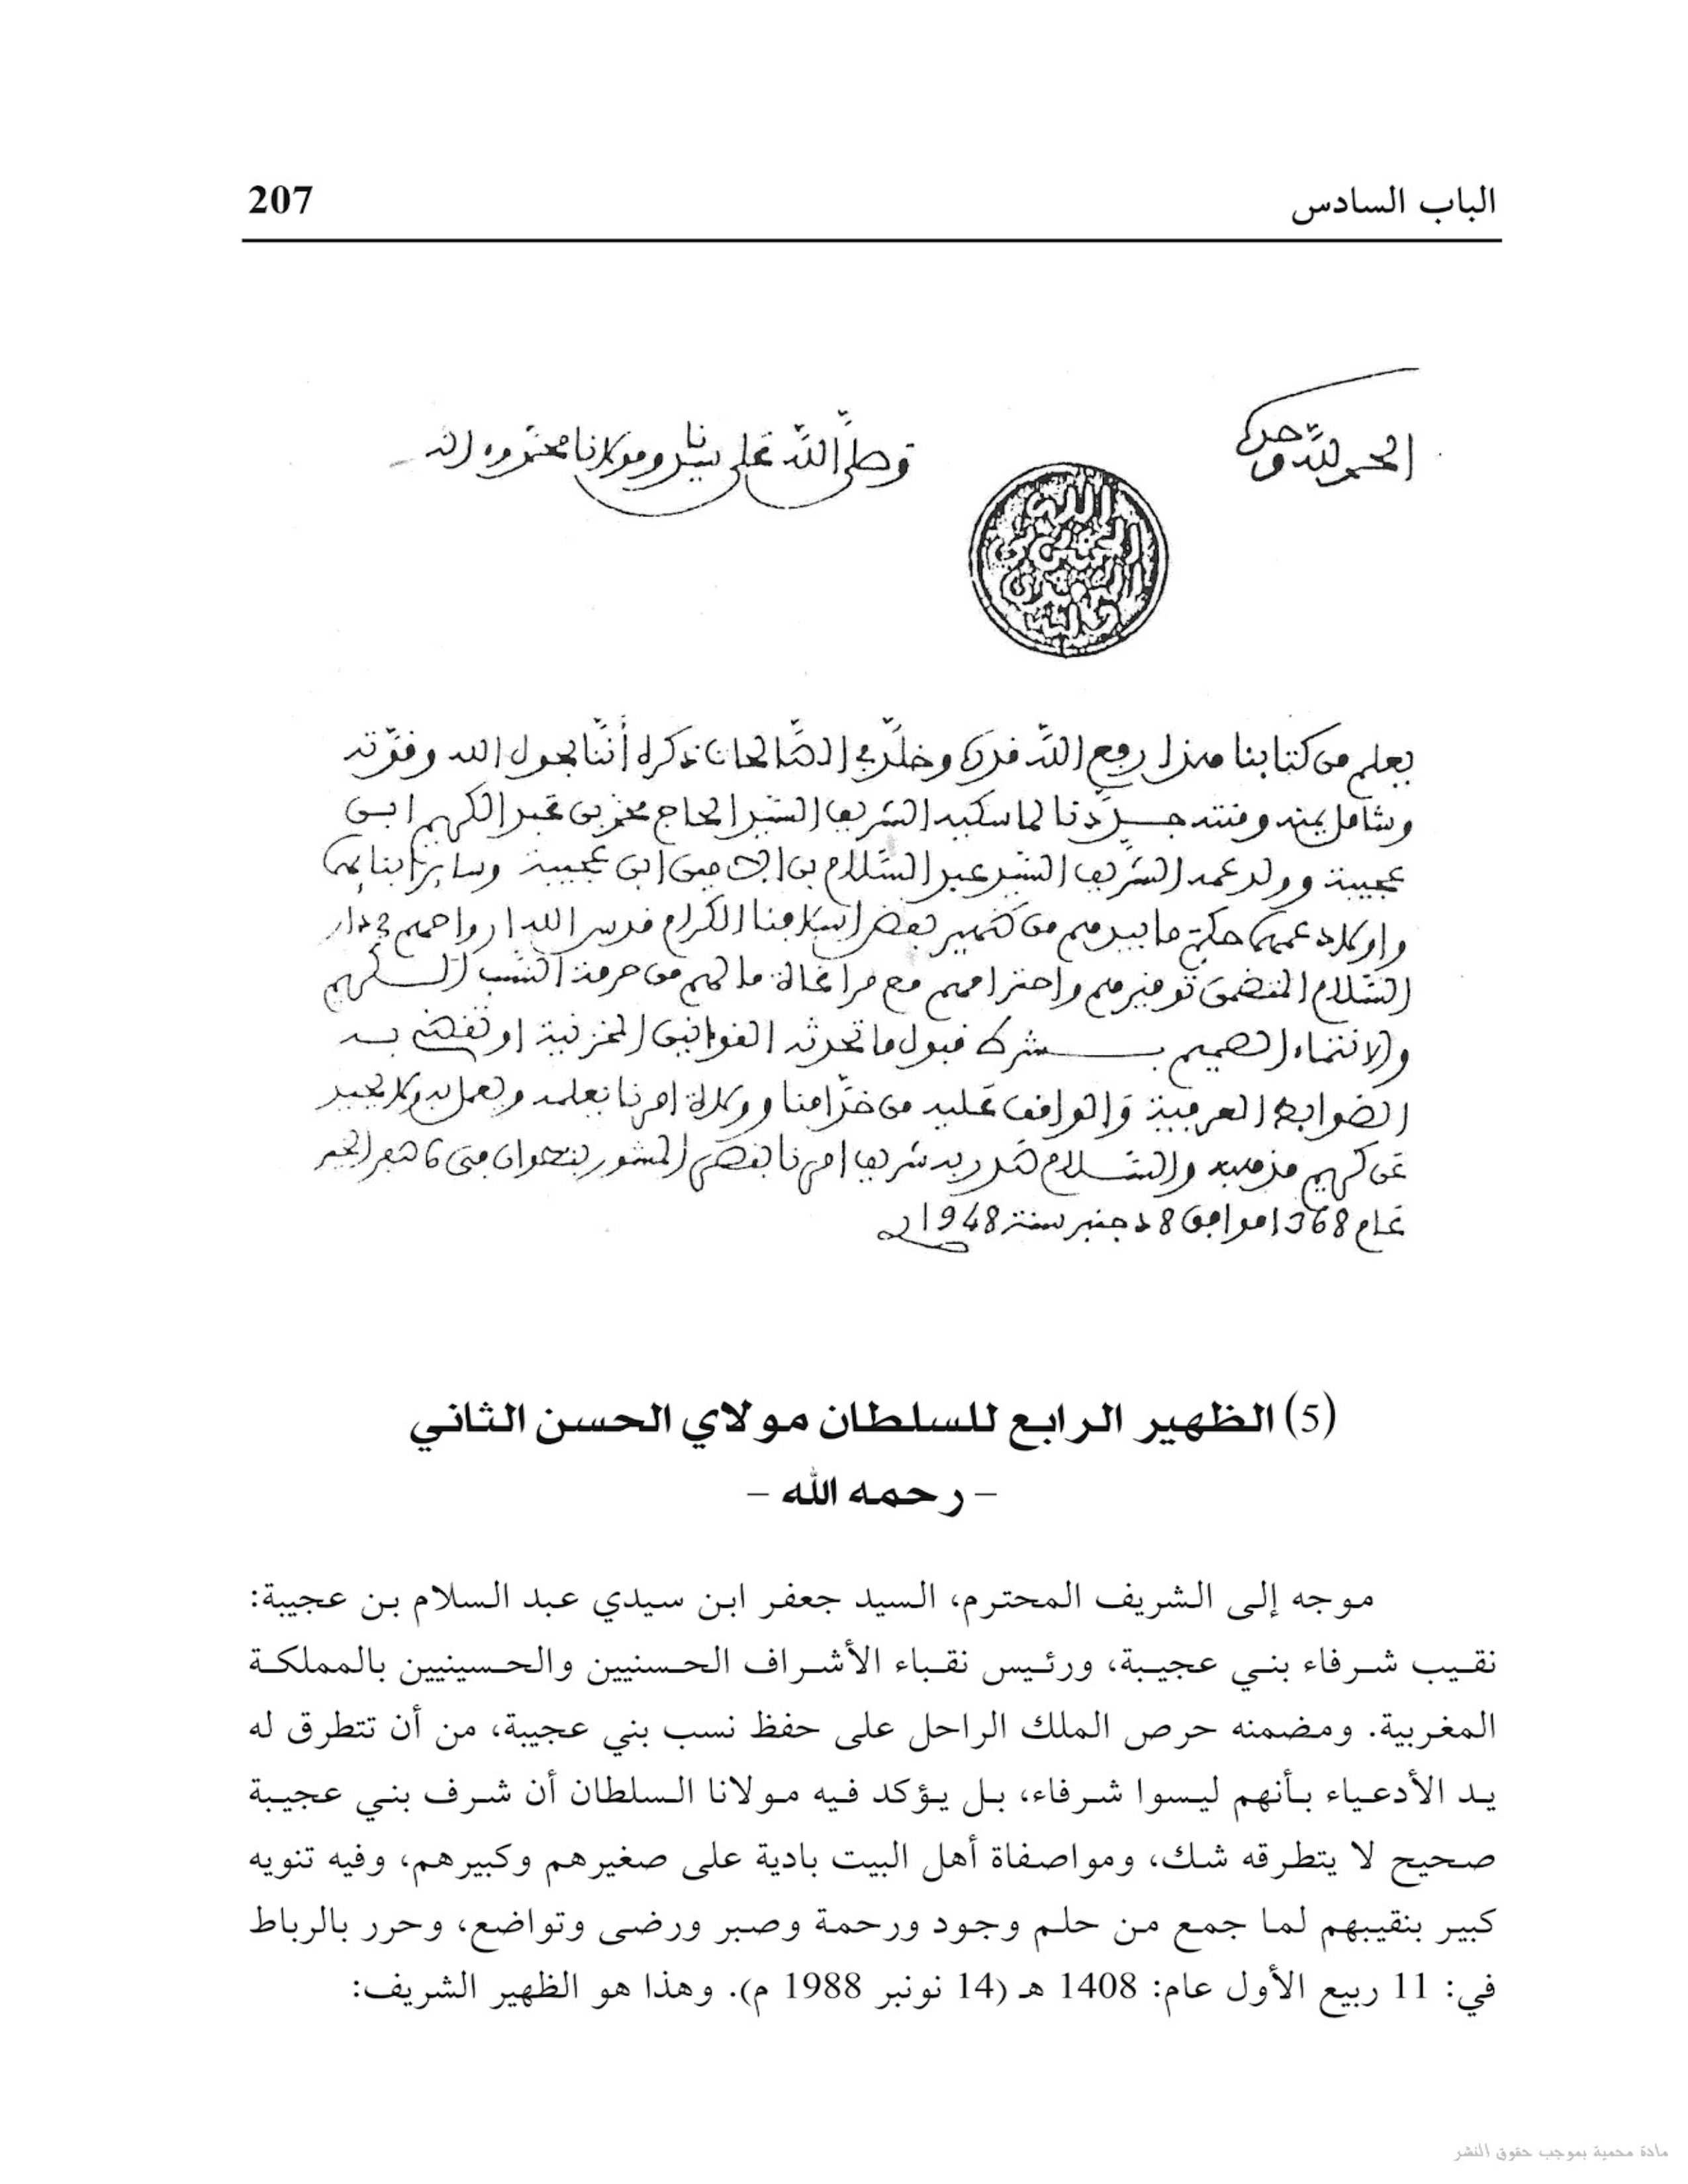 الباب السادس
207
الحمد لله وحده
وصلى الله على سيدنا ومولانا محمد وءاله
يعلم من كتابنا هذا رفع الله قدره وخلد في الصالحات ذكره أننا بحول الله وقوته
وشامل يمنه ومنته جددنا لماسكيه الشريف السيد الحاج محمد بن عبد الكريم ابن
عجيبة وولد عمه الشريف السيد عبد السلام بن ابن عجيبة وسائر أبنائهما
واولاد عمهما حكم ما بيدهم من ظهير بعض اسلافنا الكرام قدس الله ارواحهم في دار
السلام المتضمن توقيرهم واحترامهم مع مراعاة ما لهم من حرمة النسب الكريم
والانتماء الصميم بشرط قبول ما تحدثه القوانين المخزنية او تقضي به
الضوابط العرفية والواقف عليه من خدامنا وولاة امرنا يعلمه ويعمل به ولا يحيد
عن كريم مذهبه والسلام صدر به شريف امرنا بقصر المشور بتطوان في 6 صفر الخير
عام 1368 موافق 8 دجنبر سنة 1948
(5) الظهير الرابع للسلطان مولاي الحسن الثاني
– رحمه الله –
موجه إلى الشريف المحترم، السيد جعفر ابن سيدي عبد السلام بن عجيبة:
نقيب شرفاء بني عجيبة، ورئيس نقباء الأشراف الحسنيين والحسينيين بالمملكة
المغربية. ومضمنه حرص الملك الراحل على حفظ نسب بني عجيبة، من أن تتطرق له
يد الأدعياء بأنهم ليسوا شرفاء، بل يؤكد فيه مولانا السلطان أن شرف بني عجيبة
صحيح لا يتطرقه شك، ومواصفاة أهل البيت بادية على صغيرهم وكبيرهم، وفيه تنويه
كبير بنقيبهم لما جمع من حلم وجود ورحمة وصبر ورضى وتواضع، وحرر بالرباط
في: 11 ربيع الأول عام: 1408 هـ (14 نونبر 1988 م). وهذا هو الظهير الشريف:
مادة محمية بموجب حقوق النشر